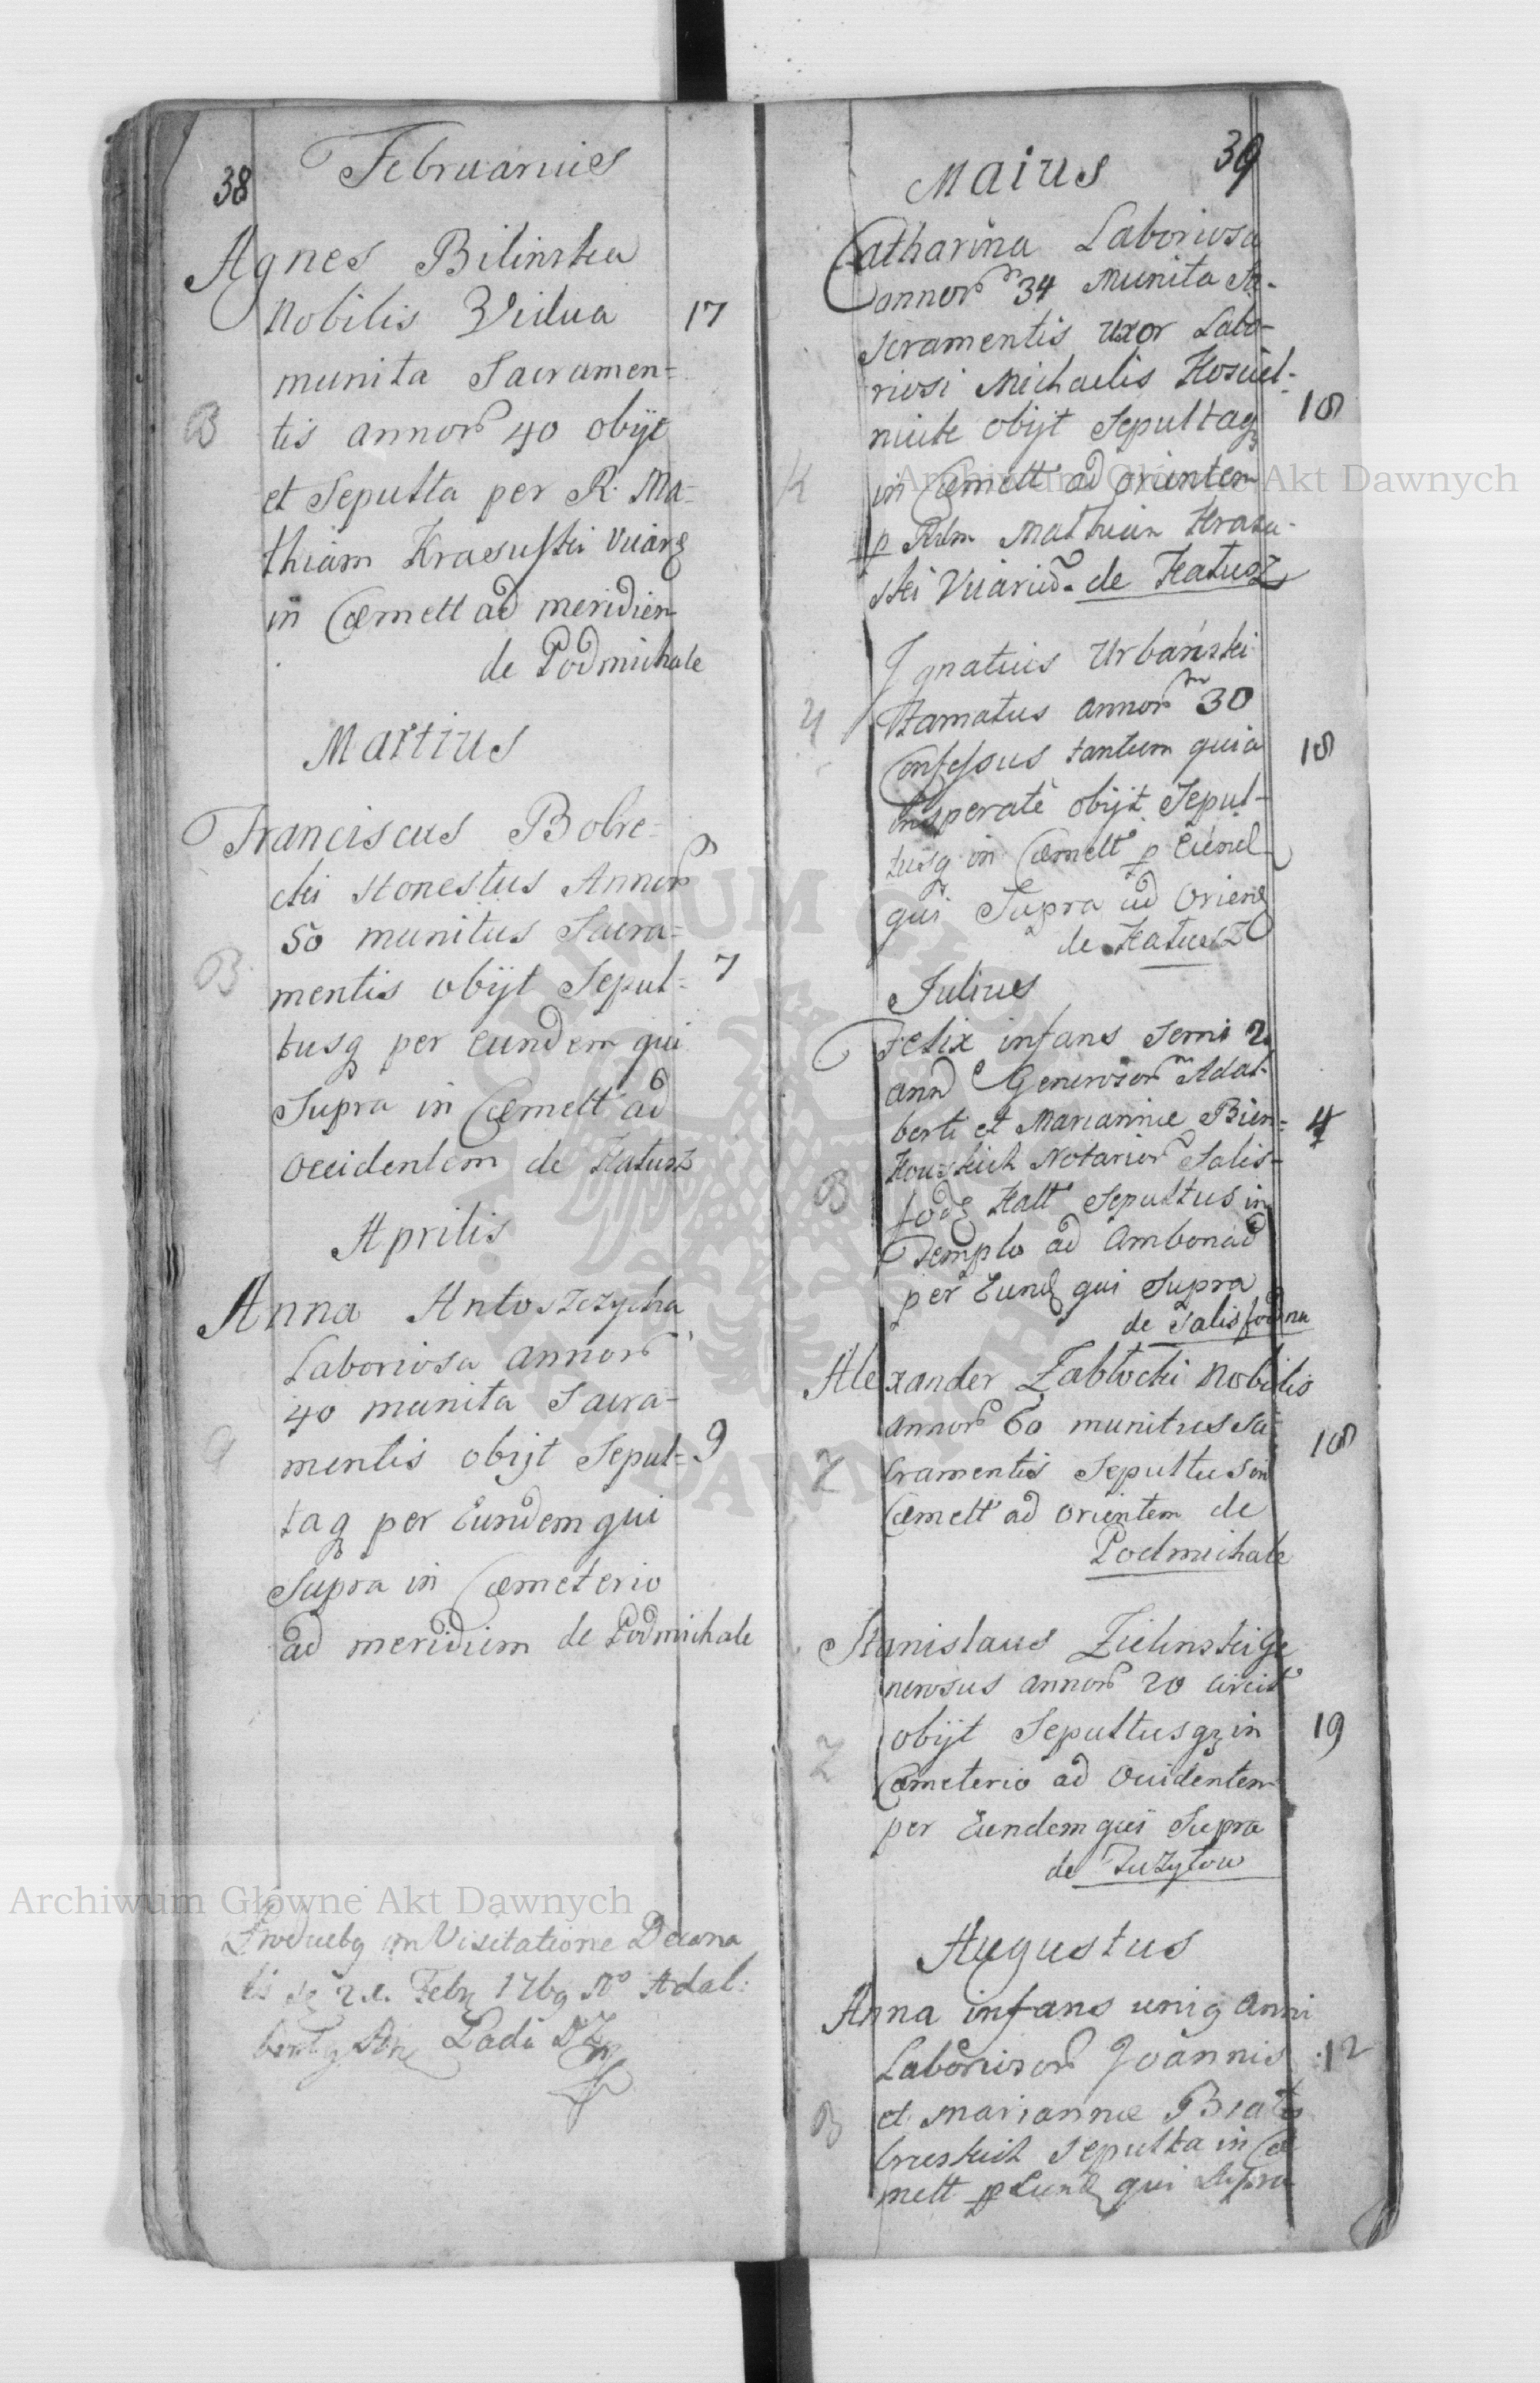 38
Februarius
Agnes Bilinska
Nobilis Vidua 17
munita Sacramen=
B
tis annor 40 obijt
et Sepulta per R. Ma=
thiam Krasuski
in Cæmett ad meridien
de Podmichale
Martius
Franciscus Bobre=
cki Honestus Annor
50 munitus Sacra=
B
mentis obijt Sepul= 7
tusq per eundem qui
Supra in Cæmett ad
Occidentem de Kalusz
Aprilis
Anna Antoszczycha
Laboriosa annor
40 munita Sacra=
mentis obijt Sepul= 9
taq per Eundem qui
Supra in Cæmeterio
ad meridiem de Podmichale
in Visitatione Decana
Adal:
39
Maius
Catharina Laboriosa
annor 34 Munita Sa=
cramentis uxor Labo=
riosi Michaelis
obijt Sepultaq 18
K
in Cæmett ad orientem
p Mathiam Krasu=
ski de Kalusz
Ignatius Urbański
Famatus annor 30
Confessus tantum quia 18
insperate obijt Sepul=
tusq in Cæmett p
qui Supra ad Orien
de Kalusz
Julius
Felix infans
ann Generosor Adal=
berti et Mariannæ Bien= 4
kowskich Notarior Salis=
B
fod Kall Sepultus in
Templo ad Ambonad
per Eund qui Supra
de Salisfodina
Alexander Zabłocki Nobilis
annor 60 munitus Sa= 18
Z
cramentis Sepultus in
Cæmett ad orientem de
Podmichale
Stanislaus Zielinski Ge
nerosus annor 20 circit
obijt Sepultusq in 19
Z
Cæmeterio ad Occidentem
per Eundem qui Supra
de
Augustus
Anna infans unig Anni
Laborisor Joannis 12
B
et Mariannæ
Sepulta in Cæ
mett p Eund qui Supra
Archiwum Główne Akt Dawnych
Archiwum Główne Akt Dawnych